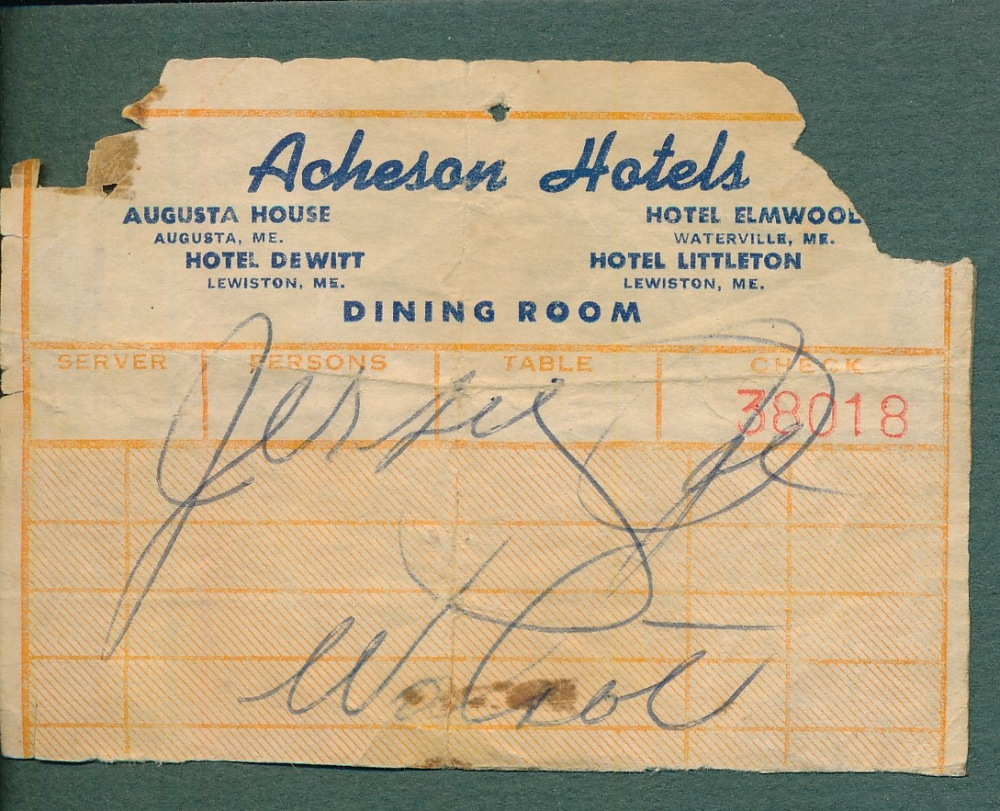 Acheson Hotels
AUGUSTA HOUSE
AUGUSTA, ME.
HOTEL DEWITT
LEWISTON, ME.
HOTEL ELMWOOD
WATERVILLE, ME.
HOTEL LITTLETON
LEWISTON, ME.
DINING ROOM
SERVER PERSONS TABLE CHECK
38018
Jersey Joe
Walcott